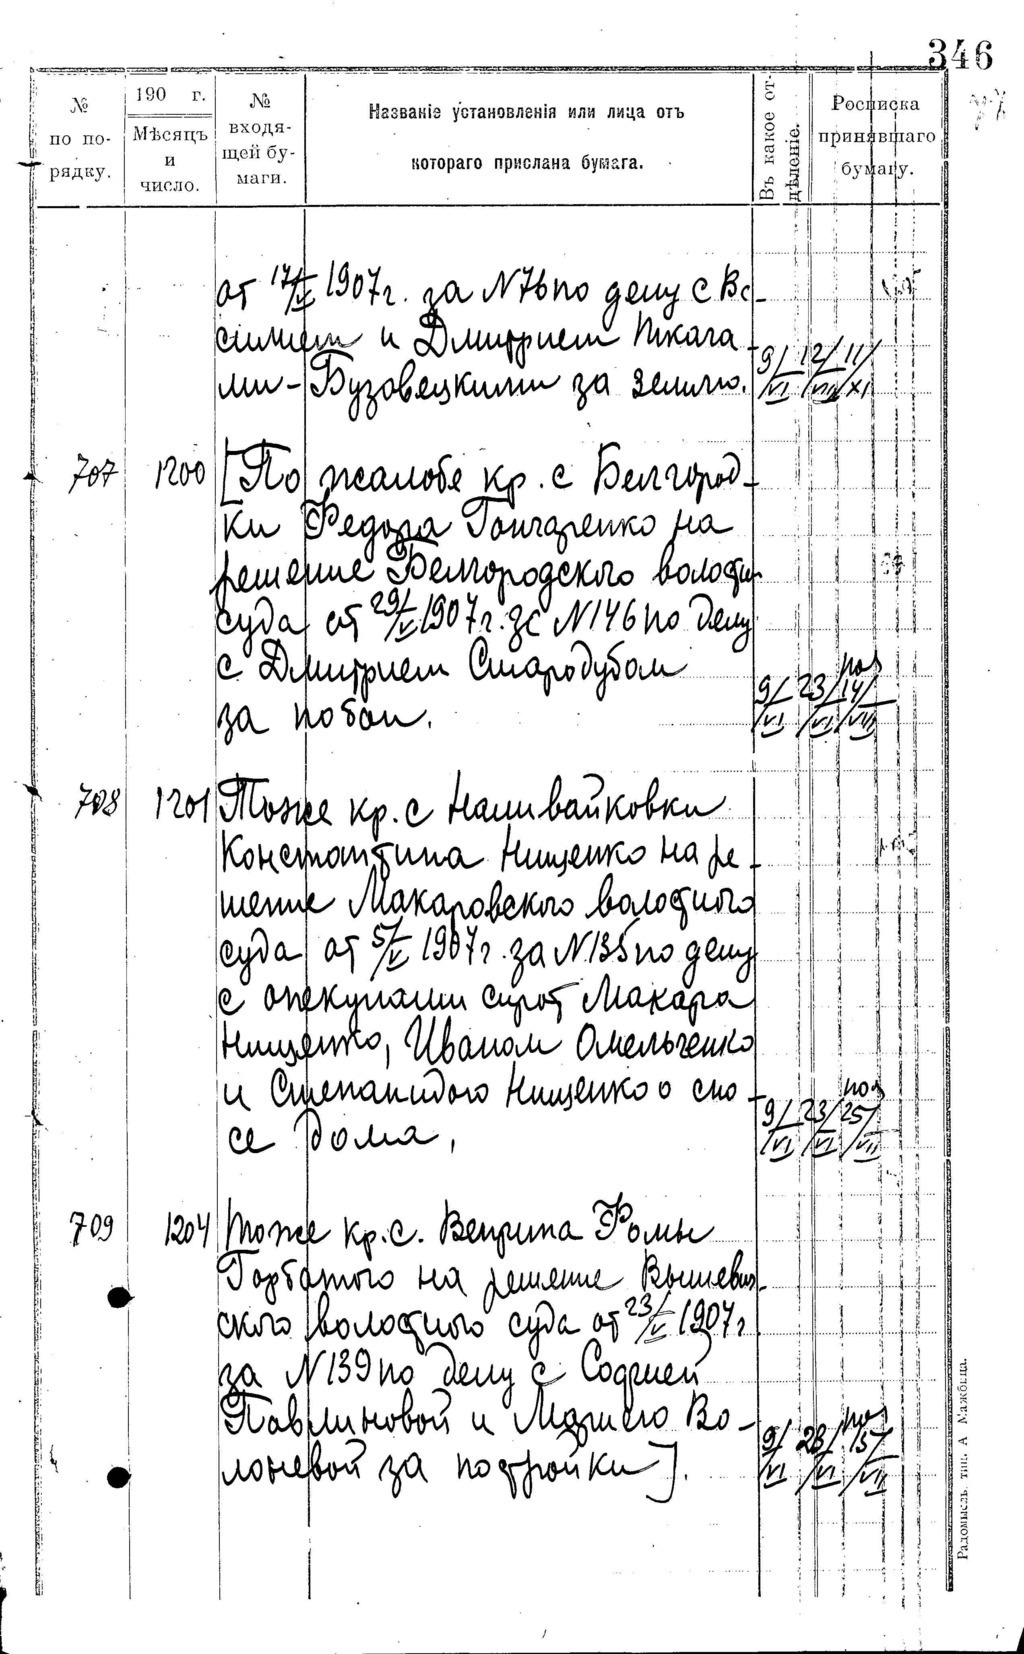 346
№ по порядку.
190 г. Мѣсяцъ и число.
№ входящей бумаги.
Названіе установленія или лица отъ
котораго прислана бумага.
Въ какое отдѣленіе.
Росписка принявшаго бумагу.
от 17/V 1907 г. за N 76 по делу с Вс-
и Дмитрием Ткача
ми-Бузовецкими за землю.
9/VI 12/VII 11/XI
707 1200 [По жалобе кр. с Белгород-
ки Федора Гончаренко на
решение Белгородского волостн
суда от 29/V 1907 г. за N 146 по делу
с Дмитрием Стародубом
за побои.
9/VI 23/VI 14/VII
708 1201 Тоже кр. с Наливайковки
Константина Нищенко на ре-
шение Макаровского волостного
суда от 5/V 1907 г. за N 135 по делу
с опекунами сирот Макара
Нищенко, Иваном Омельченко
и Степанидою Нищенко о сно-
се дома,
9/VI 23/VI 25/VII
709 1204 Тоже кр. с. Веприна Фомы
Горбатого на решение Вышевич-
ского волостного суда от 23/V 1907 г
за N 139 по делу с Софией
Павлиновой и Мариею Во-
лоневой за постройки].
9/VI 28/VI 15/VII
Радомысль. тип. А Мажбица.